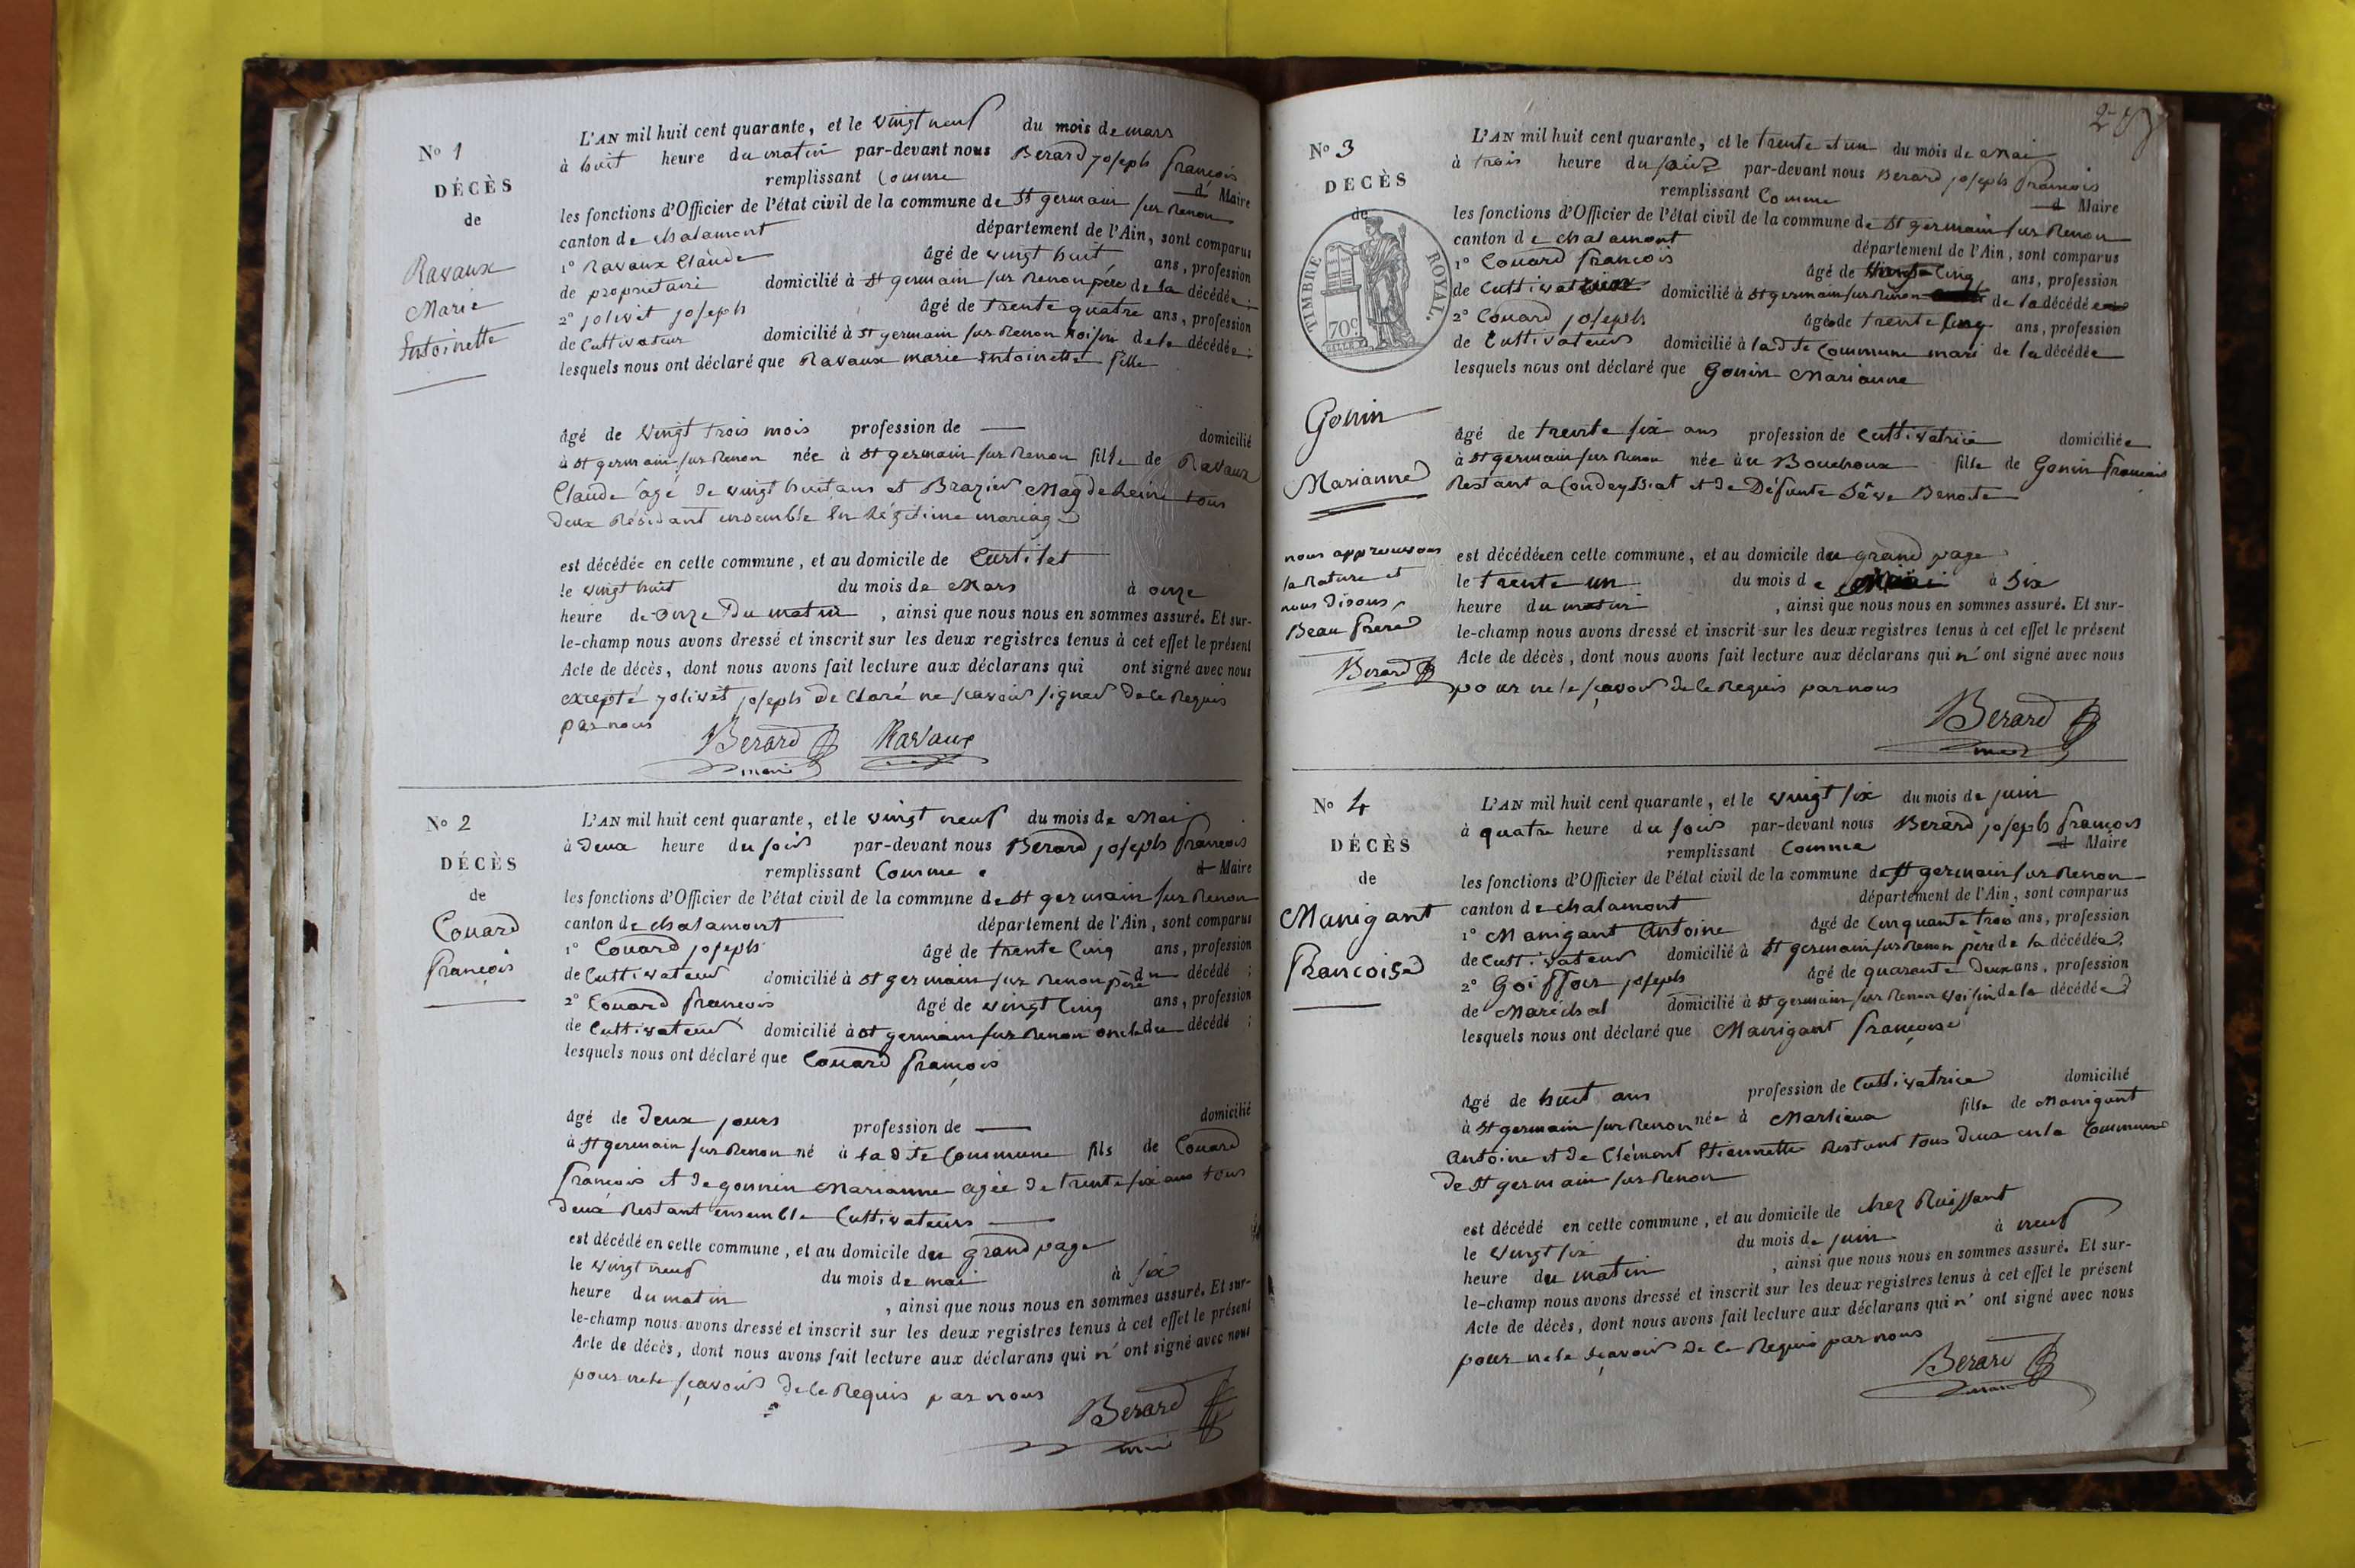 N° 1
DÉCÈS
de
Ravaux
Marie
Antoinette
L'AN mil huit cent quarante, et le vingt neuf du mois de mars
à huit heure du matin par-devant nous Berard joseph françois
remplissant Comme d Maire
les fonctions d'Officier de l'état civil de la commune de St germain sur Renon
canton de chalamont département de l'Ain, sont comparus
1° Ravaux Claude âgé de vingt huit ans, profession
de propriétaire domicilié à St germain sur Renon père de la décédée ;
2° jolivet joseph âgé de trente quatre ans, profession
de Cultivateur domicilié à St germain sur Renon voisin de la décédée ;
lesquels nous ont déclaré que Ravaux marie Antoinette fille
âgé de vingt trois mois profession de — domicilié
à St germain sur Renon née à St germain sur Renon fille de Ravaux
Claude âgé de vingt huit ans et Brazier Magdeleine tous
deux Résidant ensemble en légitime mariage
est décédée en cette commune, et au domicile de Curtilet
le vingt huit du mois de Mars à onze
heure de onze du matin , ainsi que nous nous en sommes assuré. Et sur-
le-champ nous avons dressé et inscrit sur les deux registres tenus à cet effet le présent
Acte de décès, dont nous avons fait lecture aux déclarans qui ont signé avec nous
excepté jolivet joseph de Claré ne sçavoir signer de le Requis
par nous
Berard Ravaux
maire
N° 2
DÉCÈS
de
Couard
françois
L'AN mil huit cent quarante, et le vingt neuf du mois de Mai
à deux heure du soir par-devant nous Berard joseph françois
remplissant Comme d Maire
les fonctions d'Officier de l'état civil de la commune de St germain sur Renon
canton de chalamont département de l'Ain, sont comparus
1° Couard joseph âgé de trente cinq ans, profession
de Cultivateur domicilié à St germain sur Renon père du décédé ;
2° Couard françois âgé de vingt cinq ans, profession
de Cultivateur domicilié à St germain sur Renon oncle du décédé ;
lesquels nous ont déclaré que Couard françois
âgé de deux jours profession de — domicilié
à St germain sur Renon né à la dite Commune fils de Couard
françois et de gonnin Marianne agée de trente six ans tous
deux Restant ensemble Cultivateurs
est décédé en cette commune, et au domicile du grand page
le vingt neuf du mois de mai à six
heure du matin , ainsi que nous nous en sommes assuré. Et sur-
le-champ nous avons dressé et inscrit sur les deux registres tenus à cet effet le présent
Acte de décès, dont nous avons fait lecture aux déclarans qui n' ont signé avec nous
pour ne le sçavoir de le Requis par nous
Berard
N° 3
DECÈS
de
TIMBRE ROYAL.
70c
Gonin
Marianne
nous approuvons
la Rature et
nous disons
Beau frere
Berard
L'AN mil huit cent quarante, et le trente et un du mois de Mai
à trois heure du soir par-devant nous Berard joseph françois
remplissant Comme d Maire
les fonctions d'Officier de l'état civil de la commune de St germain sur Renon
canton de chalamont département de l'Ain, sont comparus
1° Couard françois âgé de vingt cinq ans, profession
de Cultivateur domicilié à St germain sur Renon de la décédée
2° Couard joseph âgé de trente cinq ans, profession
de Cultivateur domicilié à la dte Commune mari de la décédée
lesquels nous ont déclaré que Gonin Marianne
âgé de trente six ans profession de Cultivatrice domiciliée
à St germain sur Renon née à au Bouchoux fille de Gonin françois
Restant a Condeyssiat et de Défunte Sève Benoite
est décédée en cette commune, et au domicile du grand page
le trente un du mois de Mai à Six
heure du matin , ainsi que nous nous en sommes assuré. Et sur-
le-champ nous avons dressé et inscrit sur les deux registres tenus à cet effet le présent
Acte de décès, dont nous avons fait lecture aux déclarans qui n' ont signé avec nous
pour ne le sçavoir de le Requis par nous
Berard
N° 4
DÉCÈS
de
Manigant
francoise
L'AN mil huit cent quarante, et le vingt six du mois de juin
à quatre heure du soir par-devant nous Berard joseph françois
remplissant Comme d Maire
les fonctions d'Officier de l'état civil de la commune de St germain sur Renon
canton de chalamont département de l'Ain, sont comparus
1° Manigant Antoine âgé de Cinquante trois ans, profession
de Cultivateur domicilié à St germain sur Renon père de la décédée
2° Goiffon joseph âgé de quarante deux ans, profession
de Maréchal domicilié à St germain sur Renon voisin de la décédée
lesquels nous ont déclaré que Manigant françoise
âgé de huit ans profession de Cultivatrice domicilié
à St germain sur Renon née à Marlieux fille de Manigant
antoine et de Clément Etiennette Restant tous deux en la Commune
de St germain sur Renon
est décédé en cette commune, et au domicile de chez Ruissant
le vingt six du mois de juin à neuf
heure du matin , ainsi que nous nous en sommes assuré. Et sur-
le-champ nous avons dressé et inscrit sur les deux registres tenus à cet effet le présent
Acte de décès, dont nous avons fait lecture aux déclarans qui n' ont signé avec nous
pour ne le sçavoir de le Requis par nous
Berard